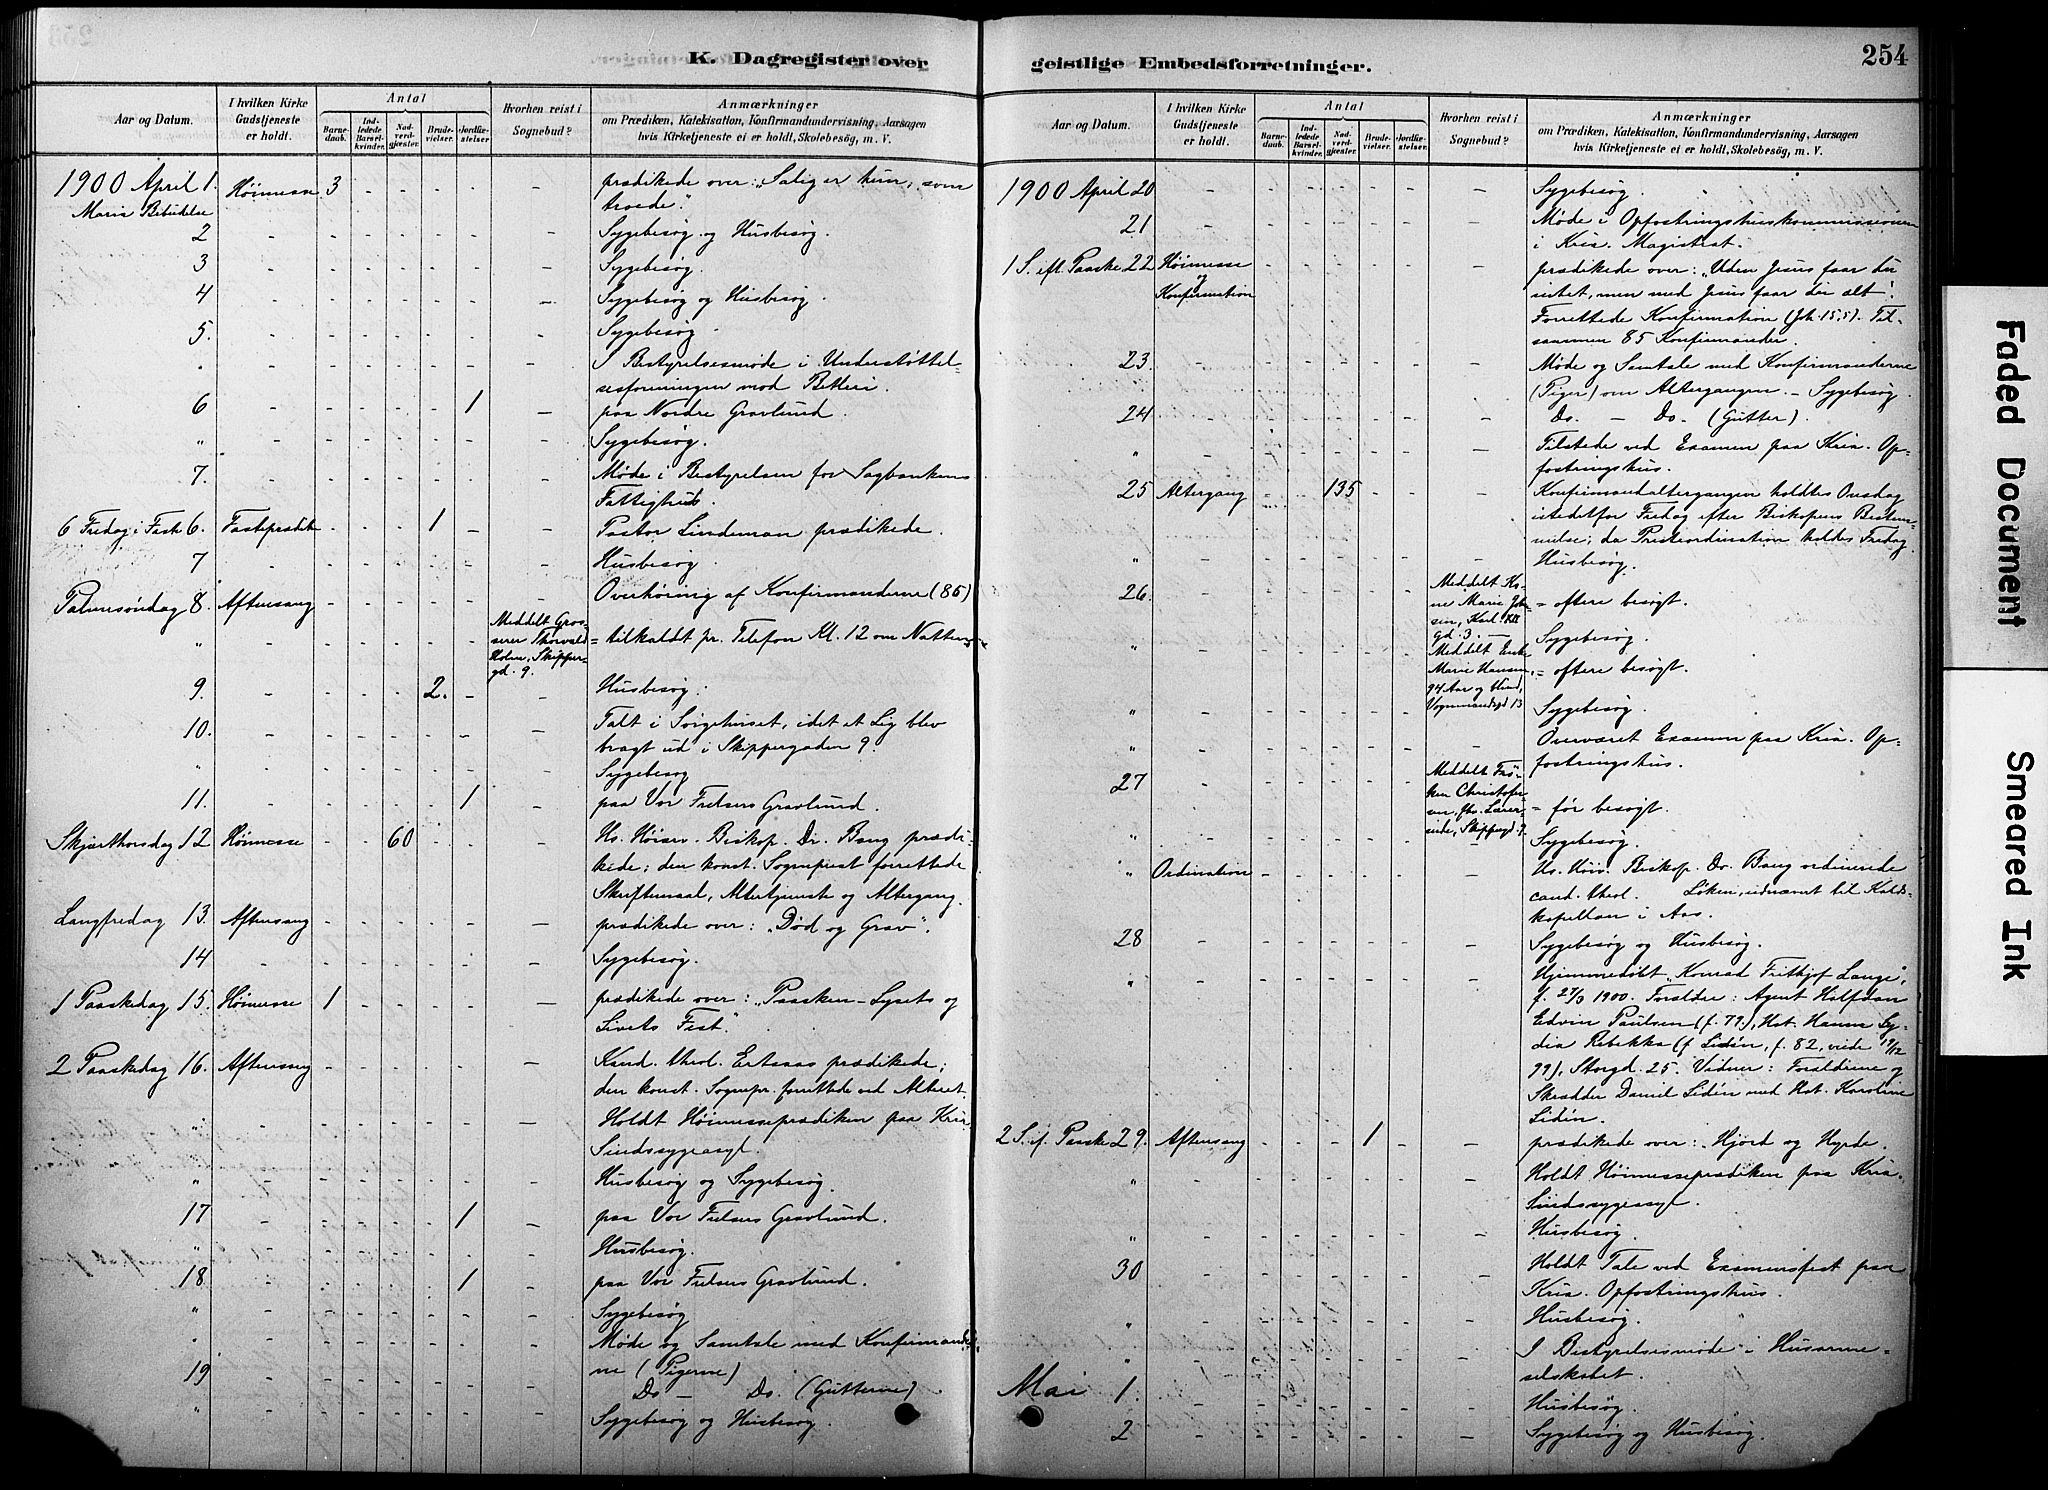 K. Dagregister over
Aar og Datum.
I hvilken Kirke Gudstjeneste er holdt.
Antal
Barnedaab.
Indledede Barselkvinder.
Nadverdgjæster.
Brudevielser.
Jordfæstelser
Hvorhen reist i Sognebud?
Anmærkninger
om Prædiken, Katekisation, Konfirmandundervisning, Aarsagen
hvis Kirketjeneste ei er holdt, Skolebesög, m. V.
1900 April 1. Høimesse 3 - - - - - prædikede over: "Salig er hun, som
Maria Bebudelse troede."
2 - - - - - - - Sygebesøg og Husbesøg.
3 - - - - - - - Sygebesøg.
4 - - - - - - - Sygebesøg og Husbesøg.
5. - - - - - - - Sygebesøg.
" - - - - - - - I Bestyrelsesmøde i Understøttel-
sesforeningen mod Betleri.
6 - - - - - 1 - paa Nordre Gravlund.
" - - - - - - - Sygebesøg.
7. - - - - - - - Møde i Bestyrelsen for Sagbankens
Fattighus.
6 Fredag i Fast 6. Fasteprædik - - - 1 - - Pastor Lindeman prædikede.
7 - - - - - - - Husbesøg.
Palmesøndag 8. Aftensang - - - - - - Overhøring af Konfirmanderne (85)
" - - - - - - Meddelt Gros-
serer Thorvald = tilkaldt pr. Telefon Kl. 12 om Natten
Holm, Skipper-
gd. 9.
9. - - - - 2. - - Husbesøg.
10. - - - - - - - Talt i Sørgehuset, idet et Lig blev
bragt ud i Skippergaden 9.
" - - - - - - - Sygebesøg
11. - - - - - 1 - paa Vor Frelsers Gravlund.
Skjærthorsdag 12 Høimesse - - 60 - - - Hs. Høiærv. Biskop Dr. Bang prædi-
kede; den konst. Sognepræst forrettede
Skriftemaal, Altertjeneste og Altergang.
Langfredag 13. Aftensang - - - - - - prædikede over: "Død og Grav".
14 - - - - - - - Sygebesøg.
1 Paaskedag 15. Høimesse 1 - - - - - prædikede over: "Paasken - Lysets og
Livets Fest".
2 Paaskedag 16. Aftensang - - - - - - Kand. theol. Ertsaas prædikede;
den konst. Sognepr. forrettede ved Alteret.
" - - - - - - - Holdt Høimesseprædiken paa Kria.
Sindssygeasyl.
" - - - - - - - Husbesøg og Sygebesøg.
17 - - - - - 1 - paa Vor Frelsers Gravlund.
" - - - - - - - Husbesøg.
18. - - - - - 1 - paa Vor Frelsers Gravlund.
" - - - - - - - Sygebesøg
" - - - - - - - Møde og Samtale med Konfirmander-
ne (Pigerne)
19 - - - - - - - Do - Do. (Gutterne).
" - - - - - - - Sygebesøg og Husbesøg.
geistlige Embedsforretninger.
254
Aar og Datum.
I hvilken Kirke Gudstjeneste er holdt.
Antal
Barnedaab.
Indledede Barselkvinder.
Nadverdgjæster.
Brudevielser.
Jordfæstelser.
Hvorhen reist i Sognebud?
Anmærkninger
om Prædiken, Katekisation, Konfirmandundervisning, Aarsagen
hvis Kirketjeneste ei er holdt, Skolebesög, m. V.
1900 April 20 - - - - - - - Sygebesøg.
21 - - - - - - - Møde i Opfostringshuskommissionen
i Kria. Magistrat.
1 S. eft. Paaske 22 Høimesse - - - - - - prædikede over: "Uden Jesus faar du
og
Konfirmation intet, men med Jesus faar du alt".
Forrettede Konfirmation (Joh. 15,5). Til-
sammen 85 Konfirmander.
23. - - - - - - - Møde og Samtale med Konfirmanderne
(Piger) om Altergangen. - Sygebesøg.
24 - - - - - - - Do. - Do. (Gutter).
" - - - - - - - Tilstede ved Examen paa Kria. Op-
fostringshus.
25 Altergang - - 135 - - - Konfirmandaltergangen holdtes Onsdag
istedetfor Fredag efter Biskopens Bestem-
melse; da Presteordination holdes Fredag
" - - - - - - - Husbesøg.
26. - - - - - - Meddelt Ko-
ne Marie = oftere besøgt.
Karl XII
gd. 3. -
" Sygebesøg.
Meddelt Enke
Marie Hansen, = oftere besøgt.
94 Aar og blind,
Vognmandsgd 13
" - - - - - - Sygebesøg.
" - - - - - - - Overværet Examen paa Kria. Op-
fostringshus.
27 - - - - - - Meddelt Frø-
ken Christofer-
sen, fhv. Lærer- = før besøgt.
inde, Skippergd. 9.
" - - - - - - - Sygebesøg.
" Ordination - - - - - - Hs. Høiærv. Biskop Dr. Bang ordinerede
cand. theol. Løken, udnævnt til Kald-
kapellan i Aas.
28 - - - - - - - Sygebesøg og Husbesøg.
" - - - - - - - Hjemmedøbt "Konrad Frithjof Lange",
f. 27/3 1900. Forældre: Agent Halfdan
Edvin Paulsen (f. 79), Hst. Hanna Ly-
dia Rebekka (f. Lidén, f. 82, viede 17/12
99), Storgd. 25. Vidner: Forældrene og
Skrædder Daniel Lidén med Hst. Karoline
Lidén.
2 S. e. Paaske 29. Aftensang - - - 1 - - prædikede over: Hjord og Hyrde.
" - - - - - - - Holdt Høimesseprædiken paa Kria.
Sindssygeasyl.
" - - - - - - - Husbesøg.
30 - - - - - - - Holdt Tale ved Examensfest paa
Kria. Opfostringshus.
" - - - - - - - Husbesøg.
" - - - - - - - I Bestyrelsesmøde i Husarme-
selskabet.
Mai 1. - - - - - - - Husbesøg.
2 - - - - - - - Sygebesøg og Husbesøg.
Faded Document
Smeared Ink